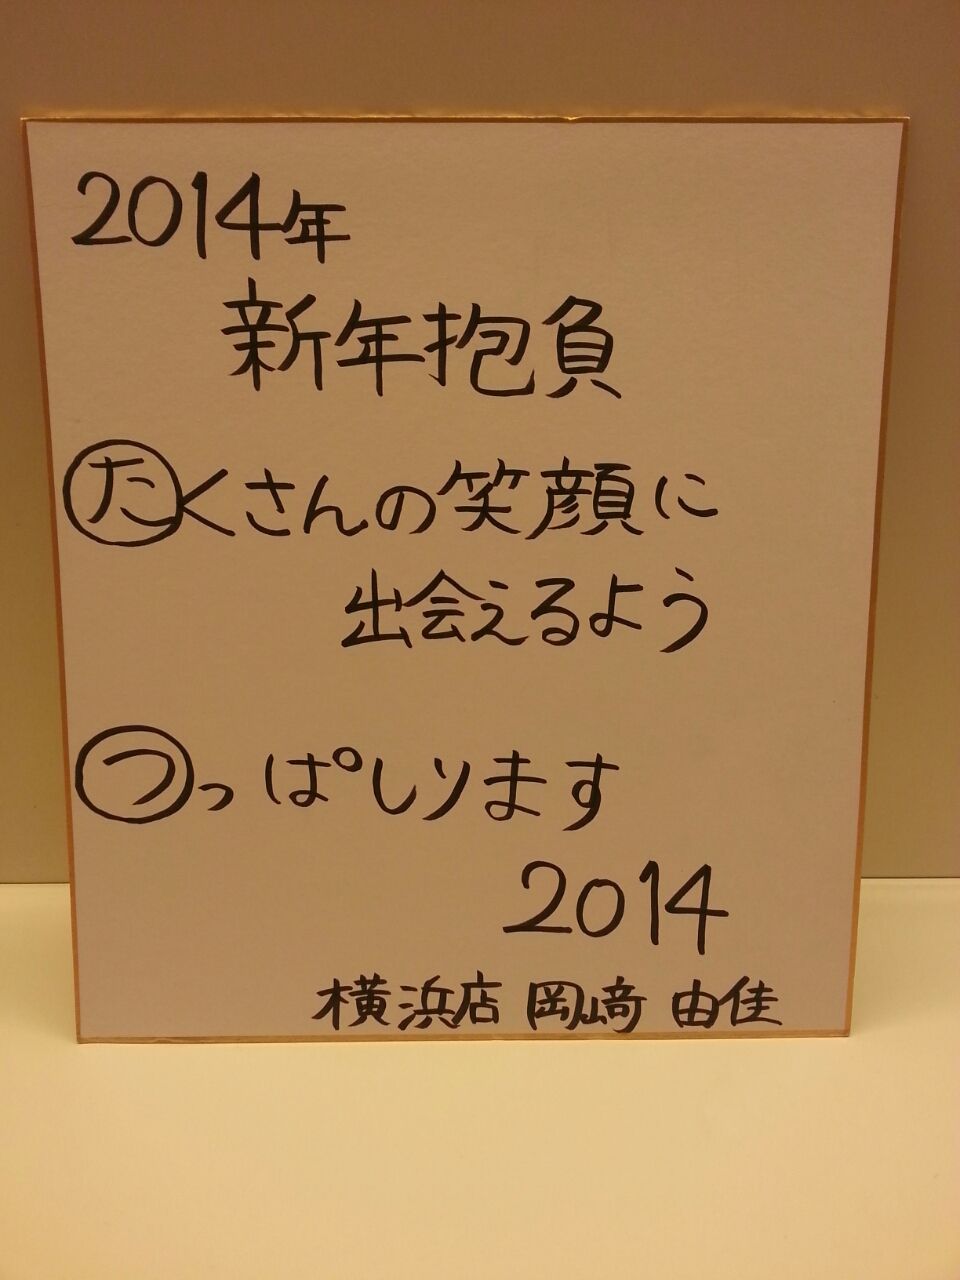 2014年
新年抱負
たくさんの笑顔に
出会えるよう
つっぱしります
2014
横浜店 岡﨑 由佳